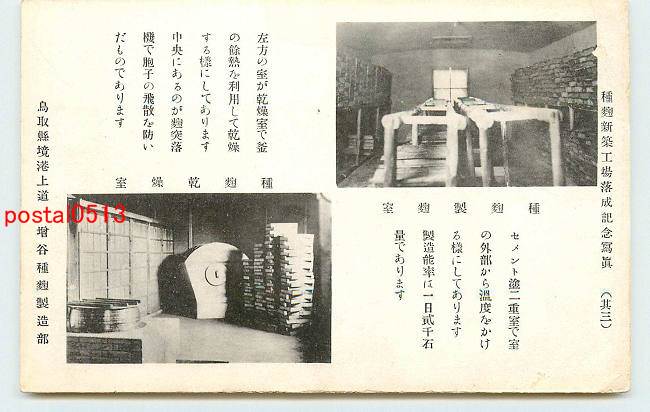 種麴新築工場落成記念寫眞 （其三）
種麴製麴室
セメント塗二重室で室
の外部から溫度をかけ
る樣にしてあります
製造能率は一日貳千石
量であります
左方の室が乾燥室で釜
の餘熱を利用して乾燥
する樣にしてあります
中央にあるのが麴突落
機で胞子の飛散を防い
だものであります
種麴乾燥室
鳥取縣境港上道 增谷種麴製造部
posta10513